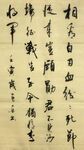 相看白刃血纷纷死節
從来豈顧勳君不見沙
場征戰苦至今猶憶李
将軍